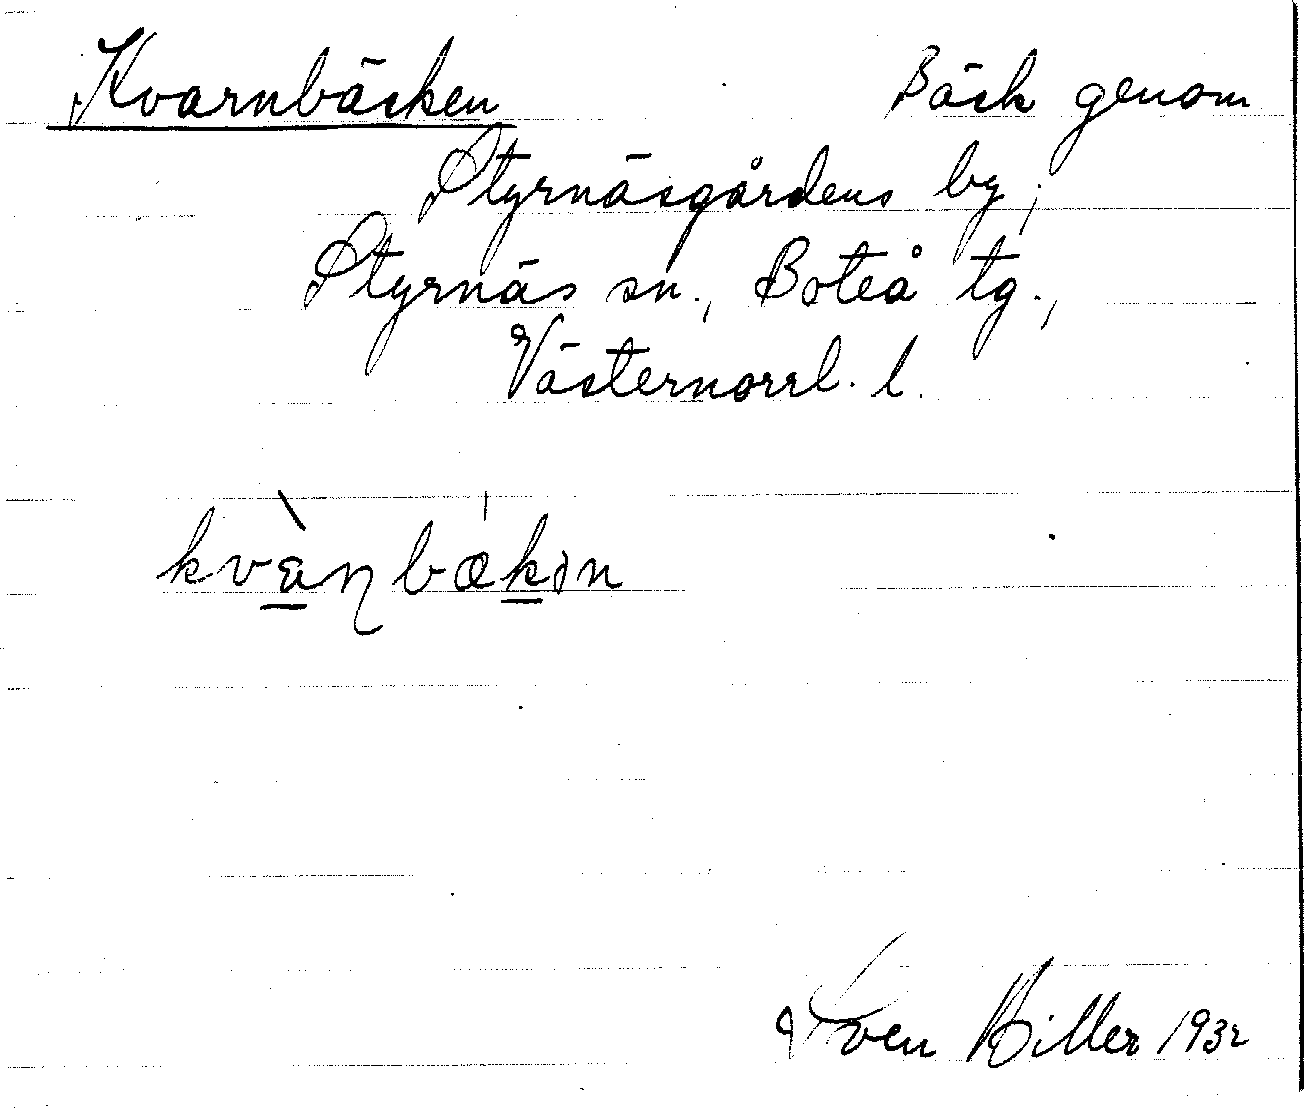 Kvarnbäcken Bäck genom
Styrnäsgårdens by,
Styrnäs sn., Boteå tg.,
Västernorrl. l.
kvæ̀ɳbækən
Sven Hiller 1932